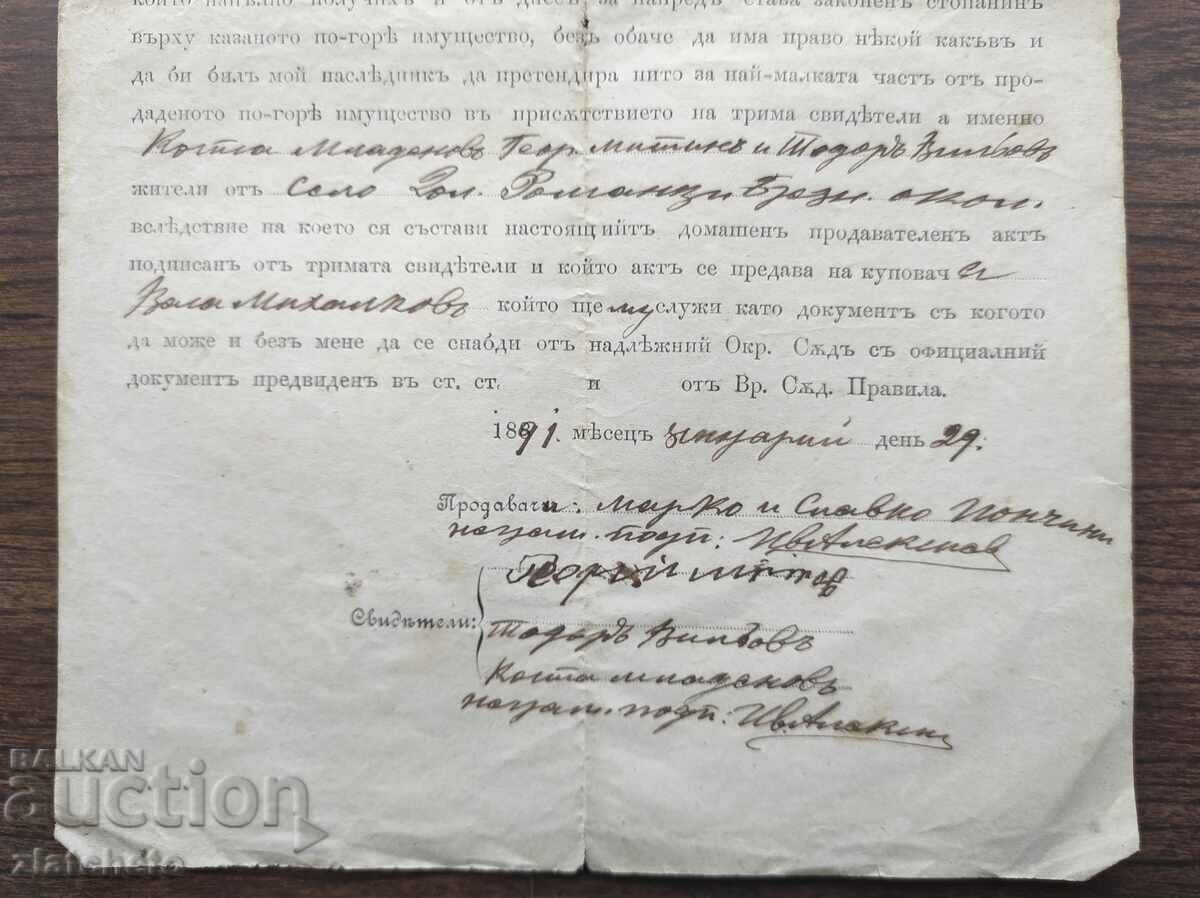 който напълно получихъ и отъ днесъ за напредъ става законенъ стопанинъ
върху казаното по-горѣ имущество, безъ обаче да има право нѣкой какъвъ и
да би билъ мой наслѣдникъ да претендира нито за най-малката часть отъ про-
даденото по-горѣ имущество въ присѫтствието на трима свидѣтели а именно
Коста Младеновъ Геор. Митинъ и Тодоръ Вилбовъ
жители отъ Село Дол. Романци Брезн. окол.
вслѣдствие на което ся състави настоящийтъ домашенъ продавателенъ актъ
подписанъ отъ тримата свидѣтели и който актъ се предава на куповач а
Вела Михалковъ който ще му служи като документъ съ когото
да може и безъ мене да се снабди отъ надлѣжний Окр. Сѫдъ съ официалний
документъ предвиденъ въ ст. ст. и отъ Вр. Сѫд. Правила.
1891. мѣсецъ Януарий день 29.
Продавачи: Марко и Славко Пончини
незам. подп: Ив Алексиов
Георги Митов
Свидѣтели:
Тодоръ Вилбовъ
Коста Младеновъ
незам. подп: Ив. Алексин
BALKAN
auction
zlatcheto